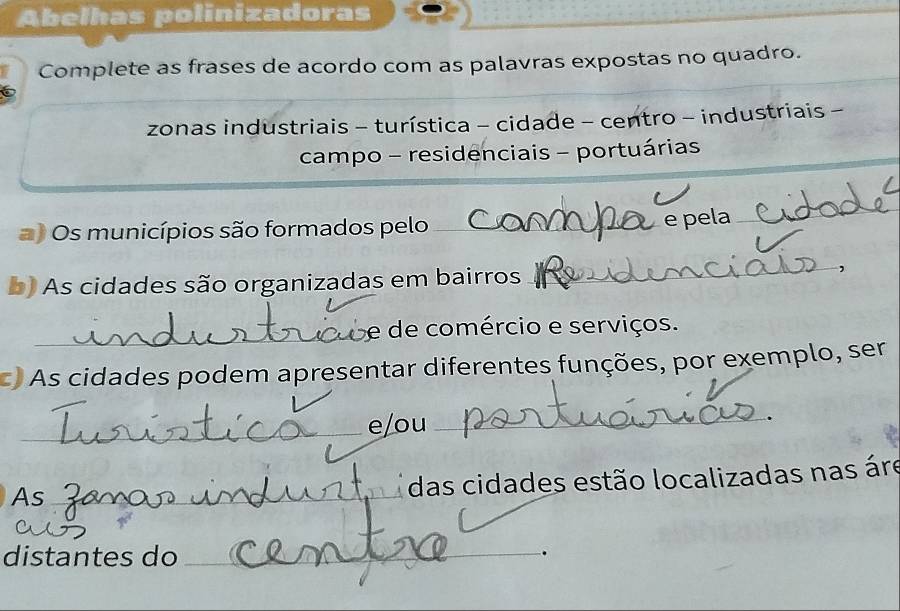 Abelhas polinizadoras
Complete as frases de acordo com as palavras expostas no quadro.
zonas industriais – turística – cidade – centro – industriais –
campo – residenciais – portuárias
a) Os municípios são formados pelo campo e pela cidade
b) As cidades são organizadas em bairros Residenciais,
industriais e de comércio e serviços.
c) As cidades podem apresentar diferentes funções, por exemplo, ser
Turistica e/ou portuárias.
As zonas industri das cidades estão localizadas nas áre
ais
distantes do centro.